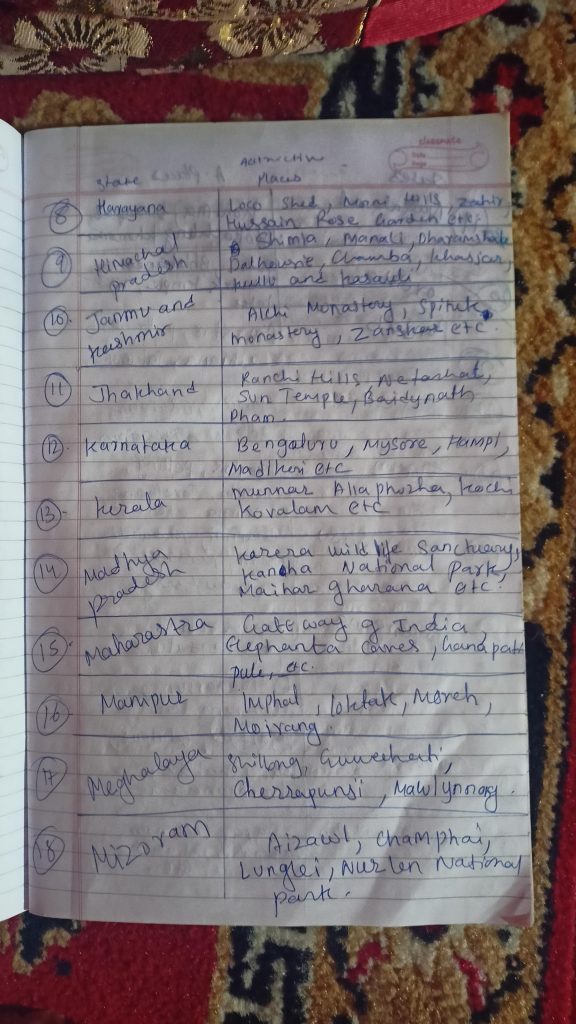 classmate
Date
Page
State
Attractive
Places
8 Harayana
Loco Shed, Morni Hills, Zakir
Hussain Rose Garden etc.
9 Himachal
pradesh
Shimla, Manali, Dharamshala
Dalhousie, Chamba, Khajjiar,
kullu and kasauli
10. Jammu and
kashmir
Alchi Monastery, Spituk
monastery, Zanskar etc.
11 Jhakhand
Ranchi Hills, Netarhat,
Sun Temple, Baidynath
Dham.
12. Karnataka
Bengaluru, Mysore, Hampi,
Madikeri etc
13. Kerala
munnar Allaphozha, Kochi
Kovalam etc
14 Madhya
pradesh
Karera wild life Sanctuary,
Kanha National Park,
Maihar gharana etc.
15. Maharastra
Gateway of India,
Elephanta caves, Ganapati
pule, etc.
16. Manipur
Imphal, loktak, Moreh,
Moirang.
17 Meghalaya
Shillong, Guwecheati,
Cherrapunji, Mawlynnong.
18. Mizoram
Aizawl, Champhai,
Lunglei, Nurlen National
park.